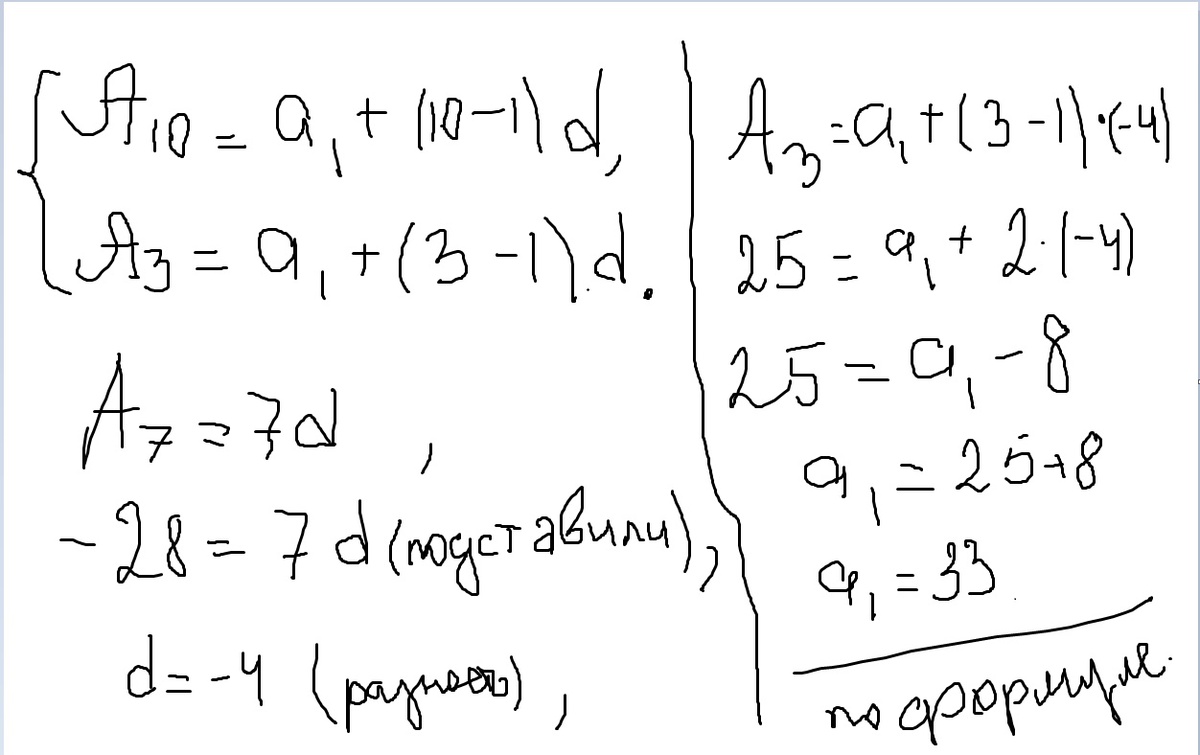 A₁₀ = a₁ + (10-1) d,
A₃ = a₁ + (3-1).d.
A₇ = 7d ,
-28 = 7 d (подставили),
d = -4 (разность),
A₃ = a₁ + (3-1)·(-4)
25 = a₁ + 2·(-4)
25 = a₁ - 8
a₁ = 25+8
a₁ = 33
по формуле.